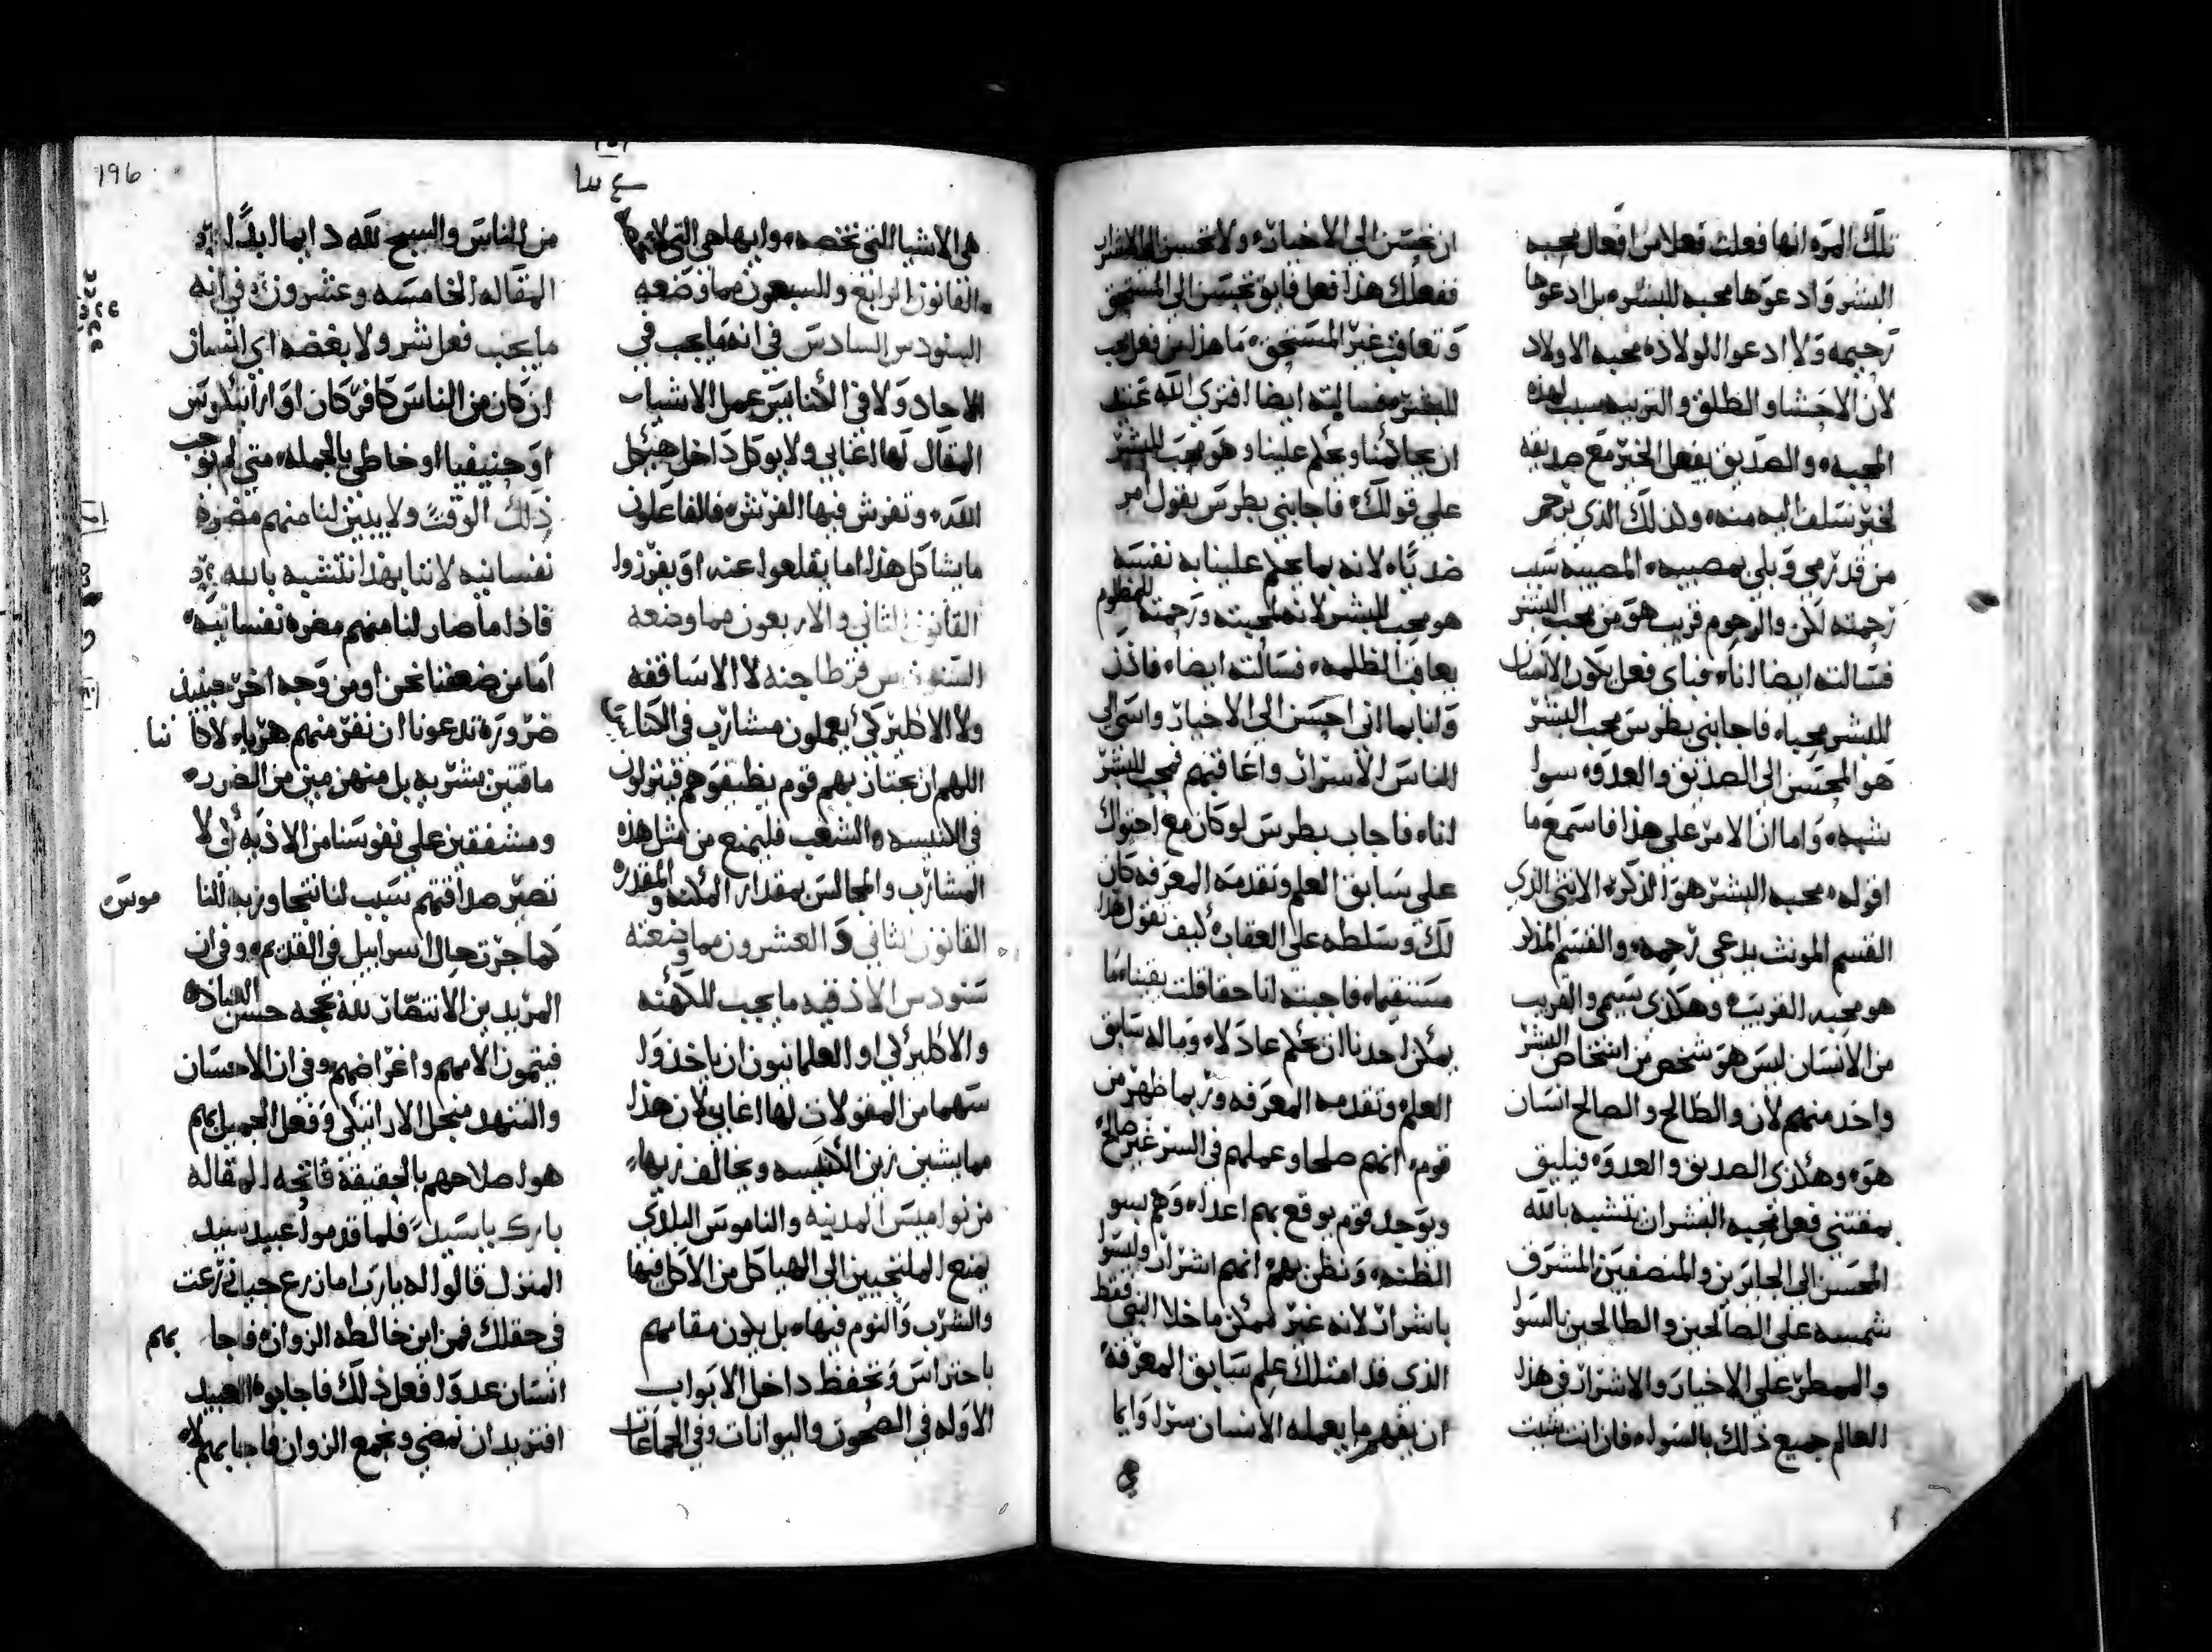 تلك المره انها فعلت فعلا من افعال محبه
البشر وادعوها محبه للبشر بل ادعوها
رحيمه ولا ادعوا الولاده محبه الاولاد
لان الاحشا والطلق والتربيه سبب لهذه
المحبه والصديق يفعل الخير مع صديقه
لخير سلف اليه منه وكذلك الذي يرحم
من قد رمي وبلي بمصيبه المصيبه سبب
رحمته لكن والمرحوم قريب هو من محب البشر
فسالته ايضا انا فباي فعل يكون الانسان
للبشر محبا فاجابني بطرس محب البشر
هو المحسن الى الصديق والعدو سوا
شبيه واما ان الامر على هذا فاسمع ما
اقوله محبه البشر هو الذكر الانثى الذي
القسم المونث يدعى رحمه والقسم المذكر
هو محبه القريب وهكذي يسمى والقريب
من الانسان ليس هو شخص من اشخاص البشر
واحد منهم لكن والطالح والصالح انسان
هو وهكذي الصديق والعدو فيليق
بمقتني فعل محبه البشر ان يتشبه بالله
المحسن الى الجايرين والمنصفين المشرف
شمسه على الصالحين والطالحين بالسوا
والممطر على الاخيار والاشرار في هذا
العالم جميع ذلك بالسوا فان انت شيت
ان تحسن الى الاخيار ولا تحسن الى الاشرار
ففعلك هذا فعل فايق تحسن الى المستحق
وتعاقب غير المستحق ما هذا من فعل محب
للبشر فسالته ايضا افترى الله عند
ان يحاكمنا ويحكم علينا وهو محب للبشر
على قولك فاجابني بطرس يقول امر
ضديا لانه بما يحكم علينا به نفسه
هو محب للبشر لانه لمحبته ورحمته للمظلوم
يعاقب الظلمه فسالته ايضا فاذن
وانا بما اني احسن الى الاخيار واسي الى
الناس الاشرار واعاقبهم فمحب للبشر
انا فاجاب بطرس لو كان مع احتوك
على سابق العلم وتقدمه المعرفه كان
لك وسلطه على العقاب كيف تقول هذا
مستقيما فاجبته انا حقا قلت يقينا ما
يمكن احدنا ان يحكم عادلا وماله سابق
العلم وتقدمه المعرفه وربما ظهر من
قوم انهم صلحا وعملهم في السر غير صالح
ويوجد قوم يوقع بهم اعداه وهم بسو
الظنه ونظن بهم انهم اشرار وليسوا
باشرار لانه غير ممكن ماخلا النبي فقط
الذي قد امتلك علم سابق المعرفه
ان يفهم ما يعمله الانسان سرا وايما
196
هي الاشيا التي تخصه وايها هي التي لا تخصه
القانون الرابع والسبعون مما وضعه
السنودس السادس في انه ما يجب في
الاحاد ولا في الكنايس عمل الاشيا
المقال لها اغابي ولا يوكل داخل هيكل
القدس وتفرش فيها الفرش فالفاعلون
ما يشاكل هذا اما يقلعوا عنه او يفرزوا
القانون الثاني والاربعون مما وضعه
السنودس قرطاجنه لا الاساقفه
ولا الاكليركي يعملون مشارب في الكنايس
اللهم ان تجتاز بهم قوم يضيفوهم فينزلون
في الكنيسه والشعب فليمنع من مثل هذه
المشارب والمجالس بمقدار المكنه والمقدره
القانون الثاني والعشرون مما وضعته
سنودس الاذقيه ما يجب للكهنه
والاكليركي او العلمانيون ان ياخذوا
سهما من المقولات لها اغابي لان هذا
مما يشين زين الكنيسه ويخالف زيها
من نواميس المدنيه والناموس البلدي
يمنع الملتجيين الى الهياكل من الاكل فيها
والشرب والنوم فيها بل يكون مقامهم
باحتراس وتحفظ داخل الابواب
الاوله في الصحون والبوانات وفي الجماعات
من الناس والسبح لله دايما ابدا
المقاله الخامسه وعشرون في انه
ما يجب فعل شر ولا بغضه اي انسان
ان كان من الناس كافر كان او اراتيكوس
او حنيفيا او خاطي بالجمله متى لم توجب
ذلك الوقت ولا يبين لنا منهم مضره
نفسانيه لاننا بهذا نتشبه بالله
فاذا ما صار لنا منهم مضره نفسانيه
اما من ضعفنا نحن او من وجه اخر حينيذ
ضروره تدعونا ان نفر منهم هربا لا كاننا
ماقتين بشريه بل منهزمين من الضرر
ومشفقين على نفوسنا من الاذيه لكي لا
تصير صداقتهم سبب لنا نتجاوز به الناموس
كما جرت حال اسراييل في القديم وفي ان
المريدين الانتصار لله بحجه حسن العباده
فيتمون الامهم واغراضهم وفي ان الاحسان
والتنهد من اجل الاراتيكي وفعل الجميل بهم
هو اصلاحهم بالحقيقه فاتحه المقاله
بارك يا سيد فلما قدموا عبيد سيد
المنزل قالوا له يا رب اما زرع جيد زرعت
في حقلك فمن اين خالطه الزوان فاجابهم
انسان عدوا فعل ذلك فاجابوه العبيد
افتريد ان نمضي ونجمع الزوان فاجابهم لا